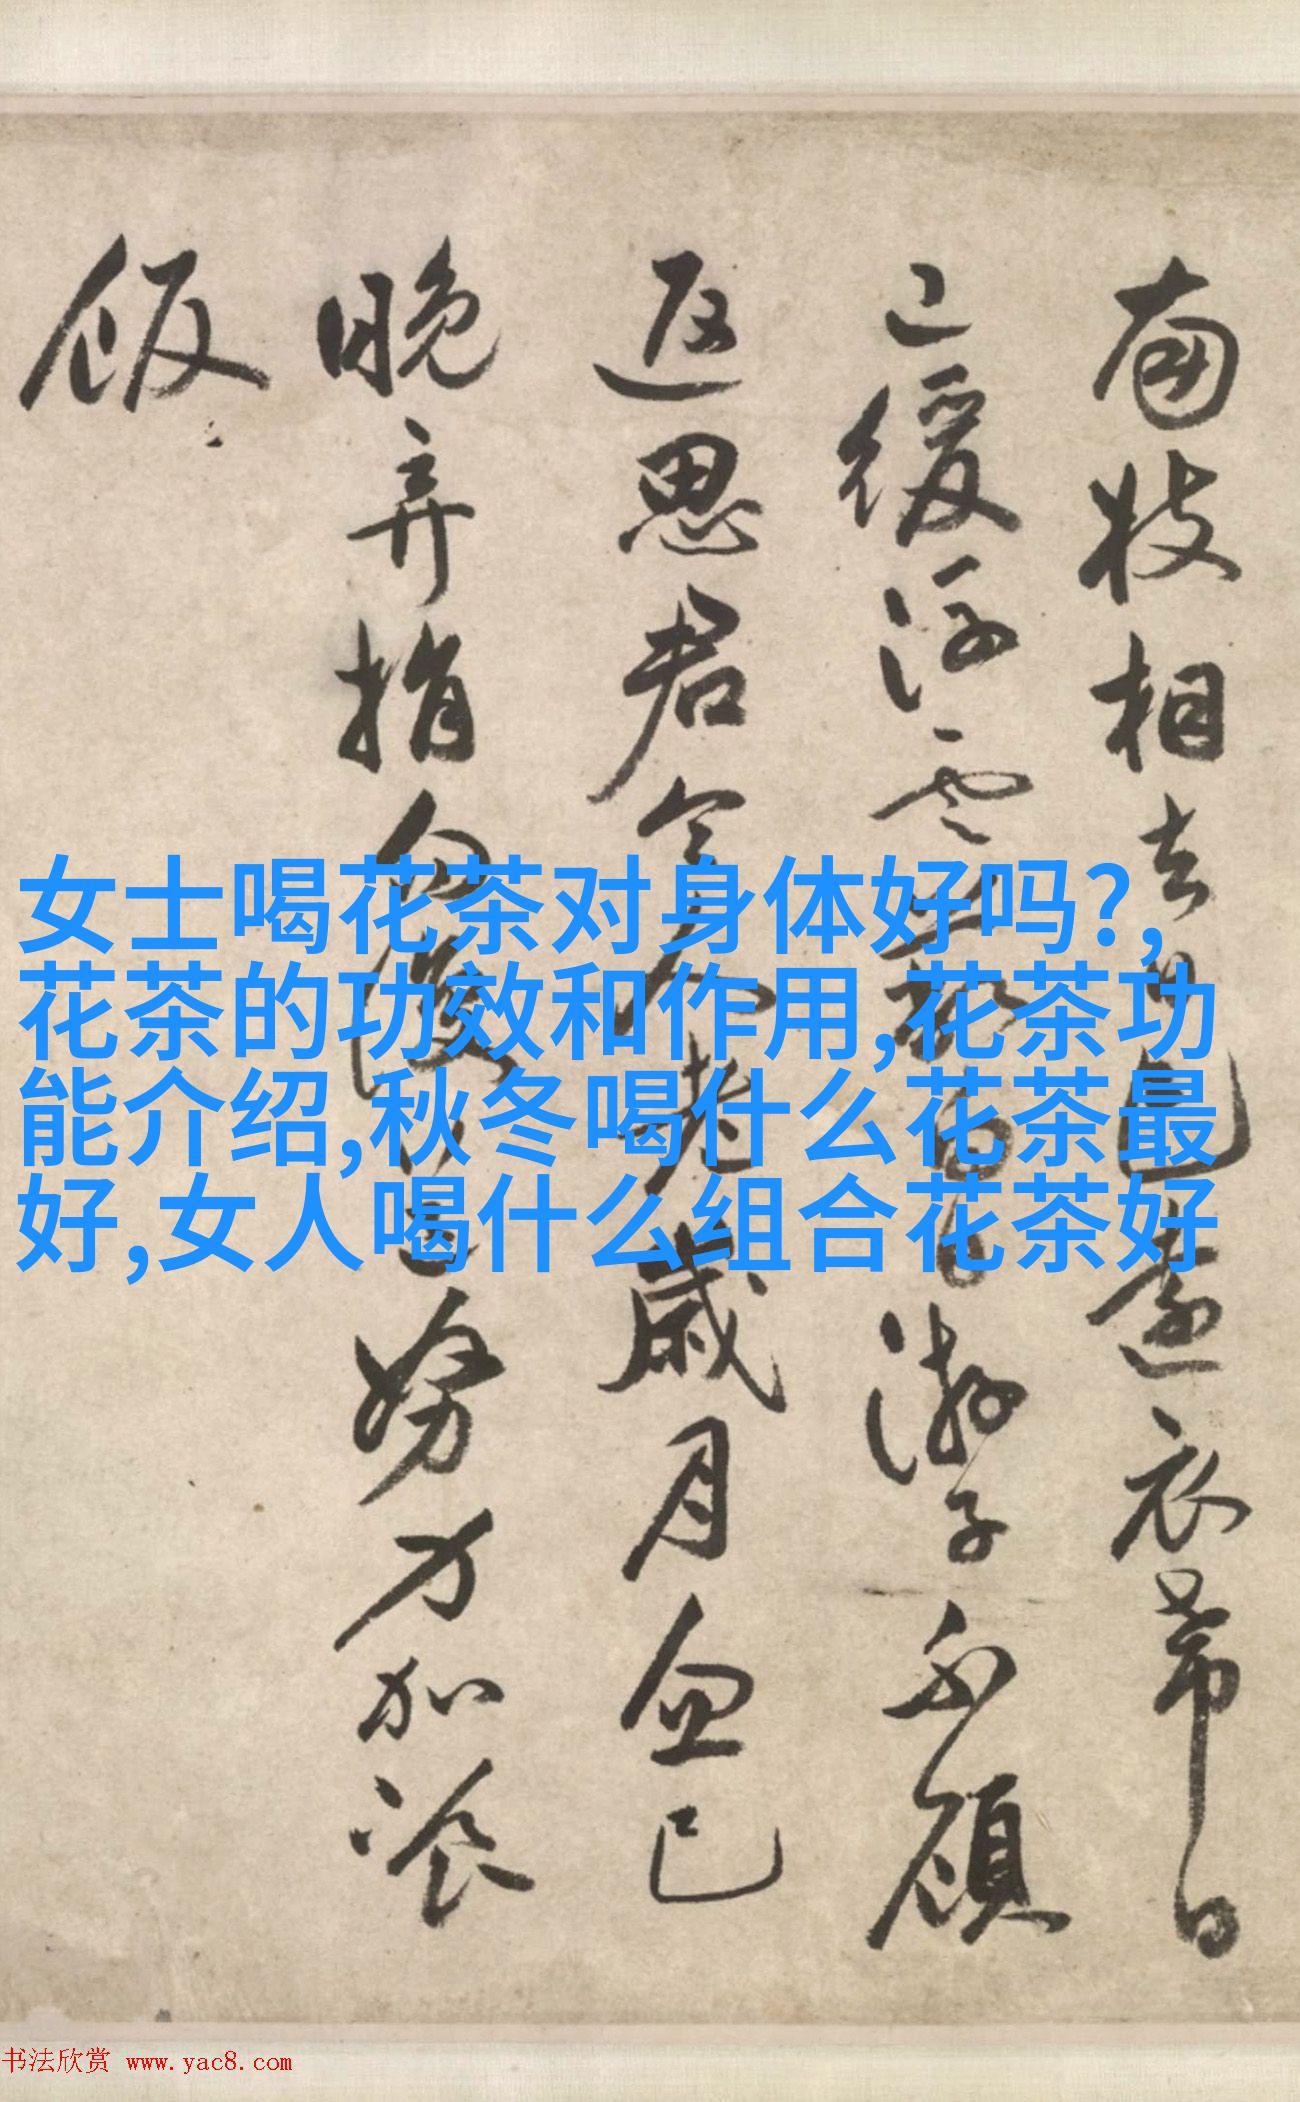 南枝相去日已遠衣帶日
已緩浮雲蔽白日游子不顧
返思君令人老歲月忽已
晚弃捐勿復道努力加飡
飯
女士喝花茶对身体好吗?,
花茶的功效和作用,花茶功
能介绍,秋冬喝什么花茶最
好,女人喝什么组合花茶好
书法欣赏 www.yac8.com